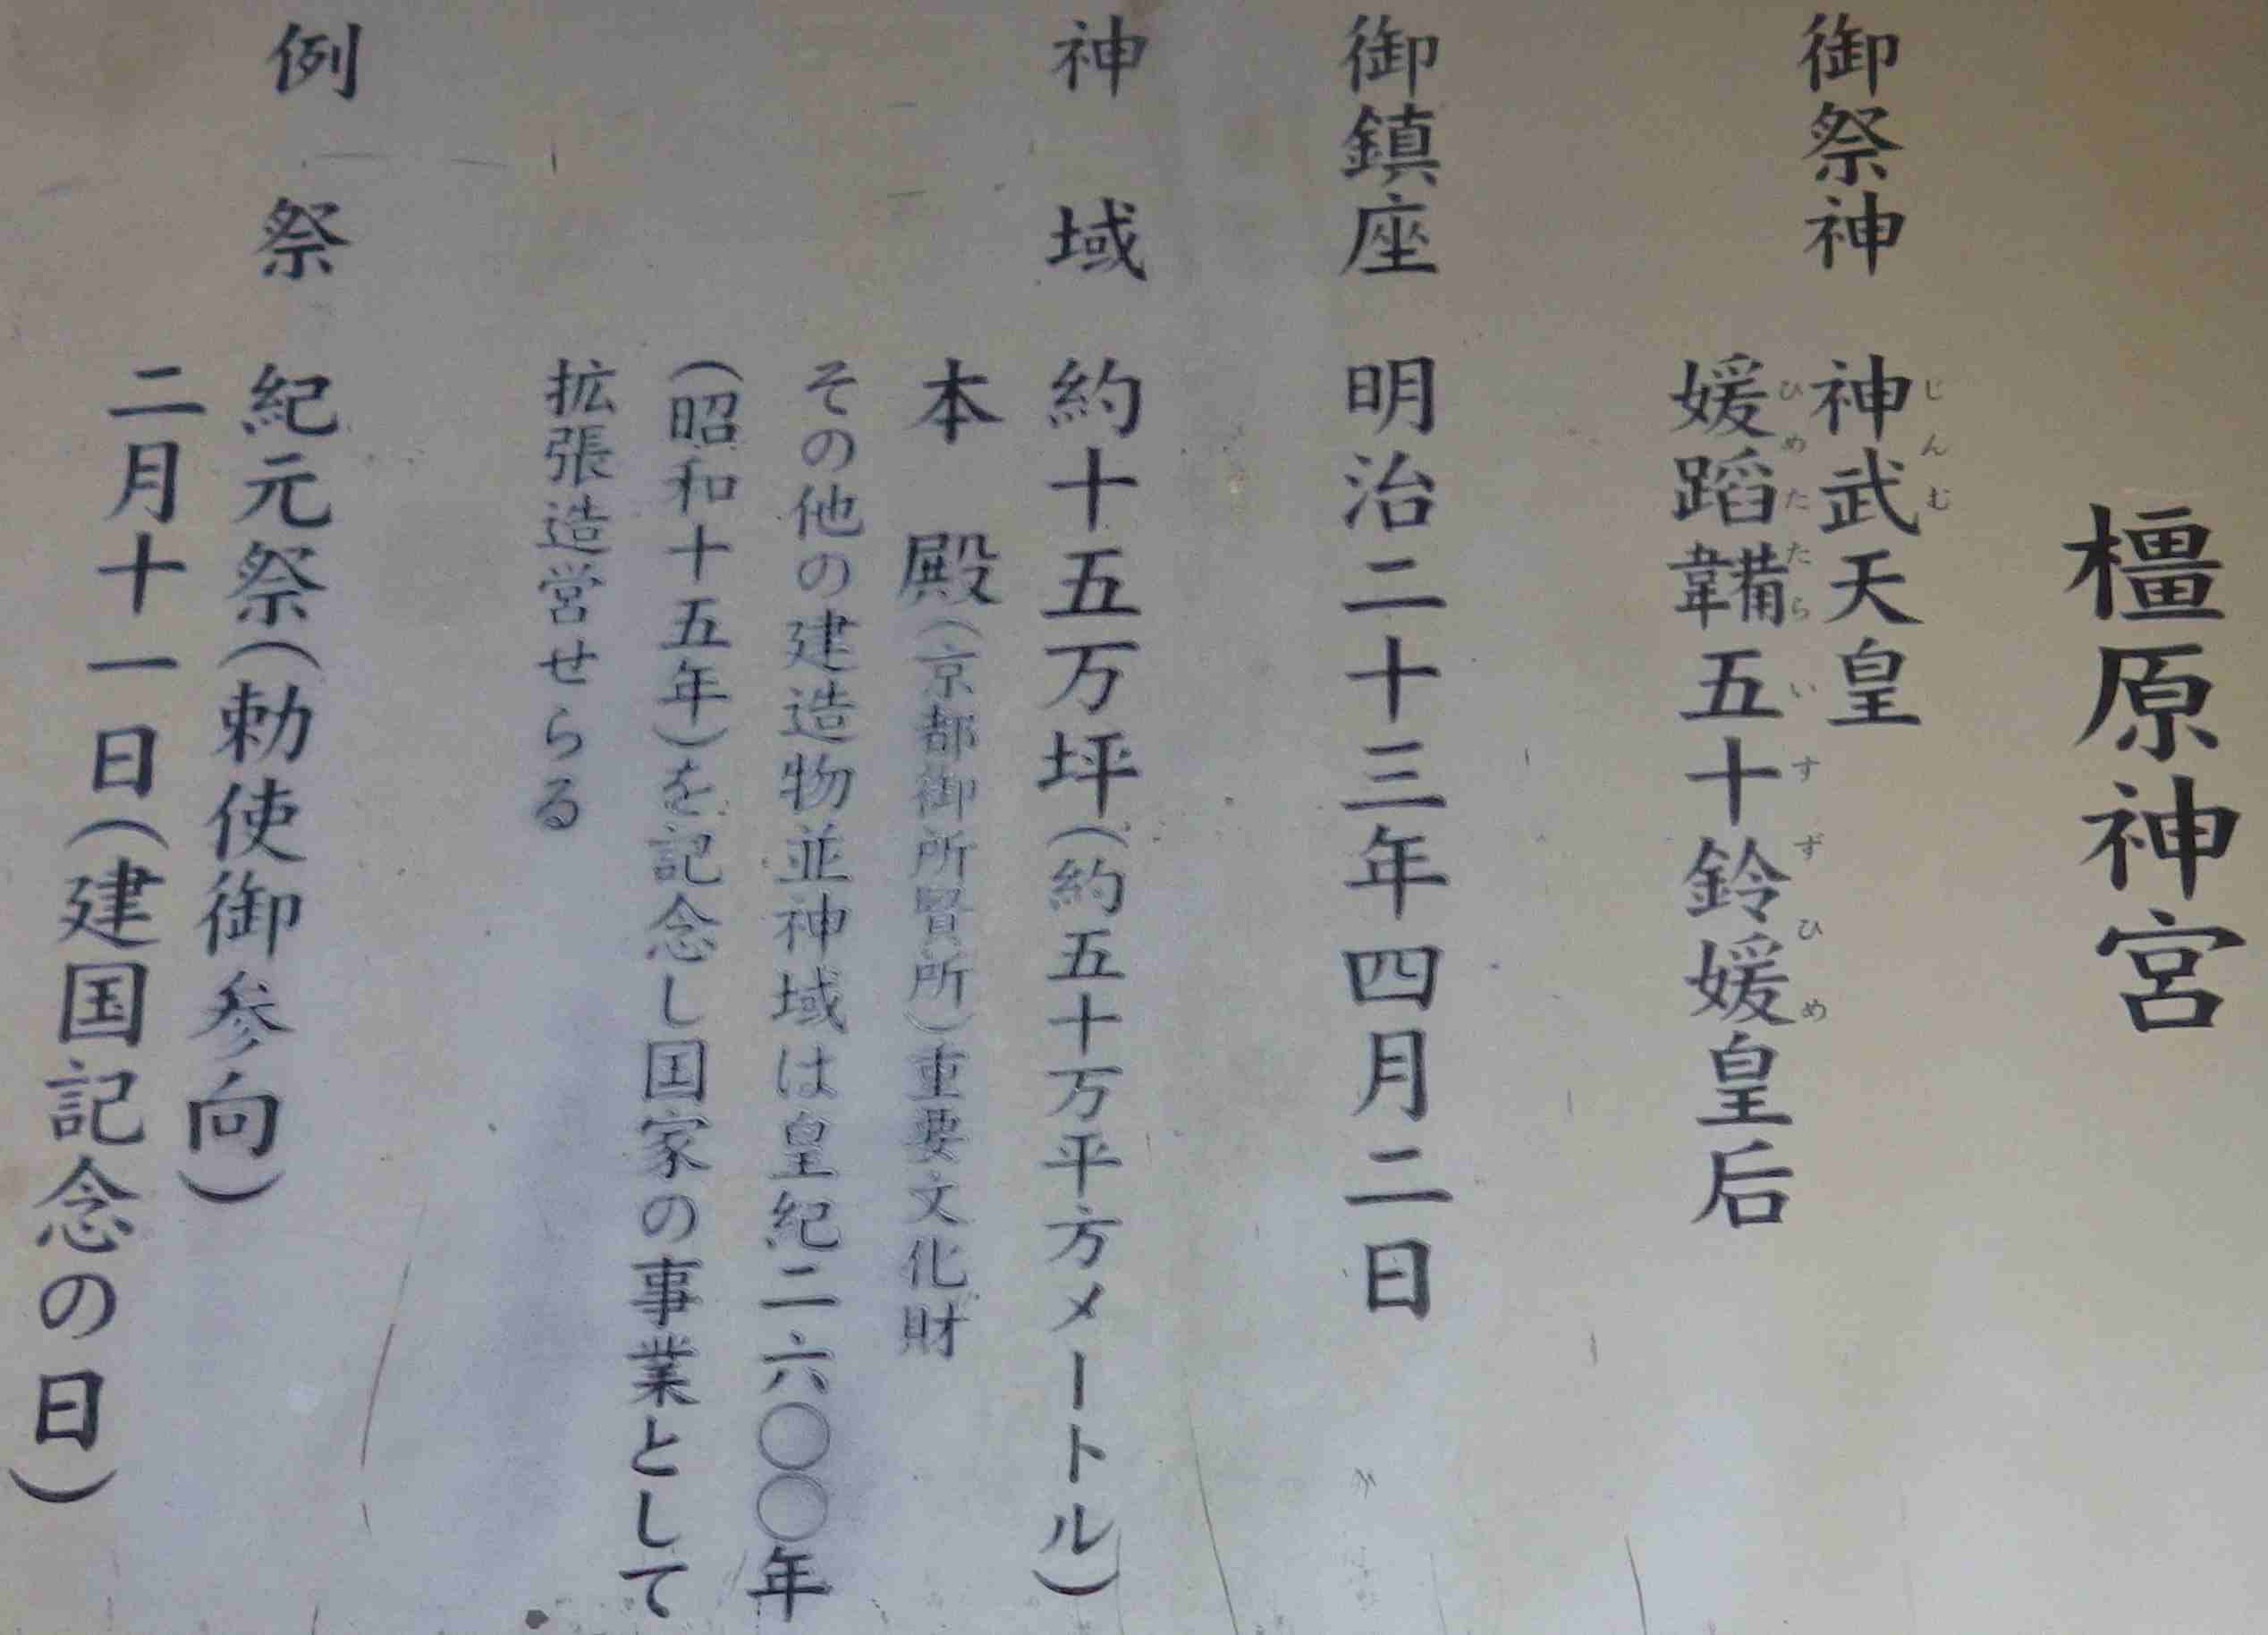 橿原神宮
御祭神 神武天皇
媛蹈韛五十鈴媛皇后
じんむ
ひめたたらいすずひめ
御鎮座 明治二十三年四月二日
神域 約十五万坪(約五十万平方メートル)
本殿(京都御所賢所)重要文化財
その他の建造物並神域は皇紀二六〇〇年
(昭和十五年)を記念し国家の事業として
拡張造営せらる
例祭 紀元祭(勅使御参向)
二月十一日(建国記念の日)